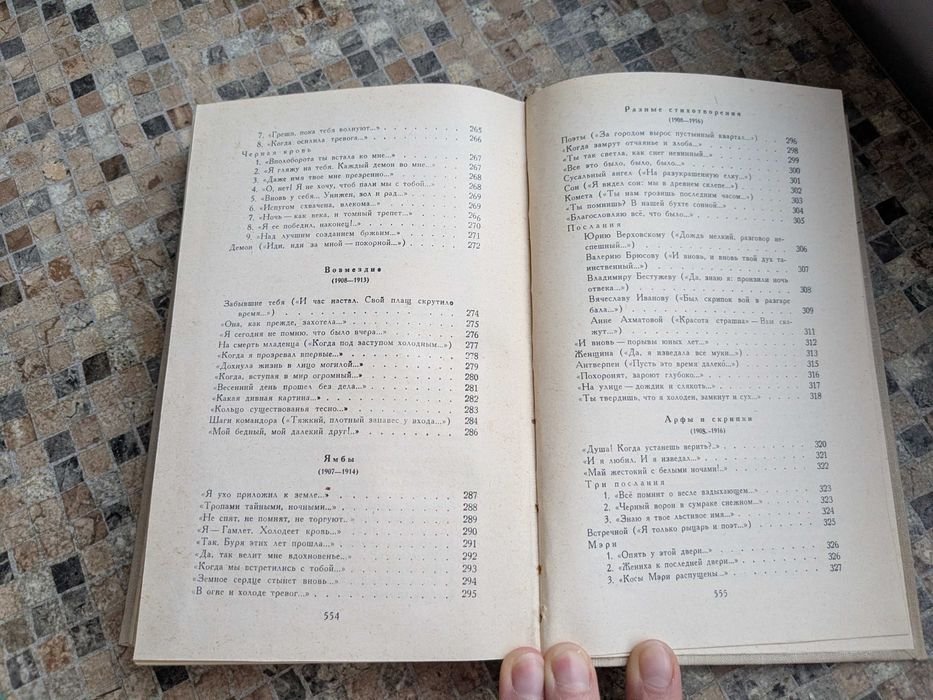 7. «Греши, пока тебя волнуют...» 265
8. «Когда осилила тревога...» 266
Черная кровь
1. «Вполоборота ты встала ко мне...» 267
2. «Я гляжу на тебя. Каждый демон во мне...» 267
3. «Даже имя твое мне презренно...» 268
4. «О, нет! Я не хочу, чтоб пали мы с тобой...» 268
5. «Вновь у себя... Унижен, зол и рад...» 269
6. «Испугом схвачена, влекома...» 269
7. «Ночь — как века, и томный трепет...» 266
8. «Я ее победил, наконец!..» 270
9. «Над лучшим созданием божьим...» 271
Демон («Иди, иди за мной — покорной...») 272
Возмездие
(1908—1913)
Забывшие тебя («И час настал. Свой плащ скрутило
время...») 274
«Она, как прежде, захотела...» 275
«Я сегодня не помню, что было вчера...» 276
На смерть младенца («Когда под заступом холодным...») 277
«Когда я прозревал впервые...» 278
«Дохнула жизнь в лицо могилой...» 279
«Когда, вступая в мир огромный...» 280
«Весенний день прошел без дела...» 281
«Какая дивная картина...» 282
«Кольцо существованья тесно...» 283
Шаги командора («Тяжкий, плотный занавес у входа...») 284
«Мой бедный, мой далекий друг!..» 286
Ямбы
(1907—1914)
«Я ухо приложил к земле...» 287
«Тропами тайными, ночными...» 288
«Не спят, не помнят, не торгуют...» 289
«Я — Гамлет. Холодеет кровь...» 290
«Так. Буря этих лет прошла...» 291
«Да, так велит мне вдохновенье...» 292
«Когда мы встретились с тобой...» 293
«Земное сердце стынет вновь...» 294
«В огне и холоде тревог...» 295
554
Разные стихотворения
(1908—1916)
Поэты («За городом вырос пустынный квартал...») 296
«Когда замрут отчаянье и злоба...» 298
«Ты так светла, как снег невинный...» 299
«Все это было, было, было...» 300
Сусальный ангел («На разукрашенную елку...») 301
Сон («Я видел сон: мы в древнем склепе...») 302
Комета («Ты нам грозишь последним часом...») 303
«Ты помнишь? В нашей бухте сонной...» 304
«Благословляю всё, что было...» 305
Послания
Юрию Верховскому («Дождь мелкий, разговор не-
спешный...») 306
Валерию Брюсову («И вновь, и вновь твой дух та-
инственный...») 307
Владимиру Бестужеву («Да, знаю я: пронзили ночь
отвека...») 308
Вячеславу Иванову («Был скрипок вой в разгаре
бала...») 309
Анне Ахматовой («Красота страшна» — Вам ска-
жут...») 311
«И вновь — порывы юных лет...» 312
Женщина («Да, я изведала все муки...») 313
Антверпен («Пусть это время далеко...») 315
«Похоронят, зароют глубоко...» 316
«На улице — дождик и слякоть...» 317
«Ты твердишь, что я холоден, замкнут и сух...» 318
Арфы и скрипки
(1908—1916)
«Душа! Когда устанешь верить?..» 320
«И я любил. И я изведал...» 321
«Май жестокий с белыми ночами!..» 322
Три послания
1. «Всё помнит о весле вздыхающем...» 323
2. «Черный ворон в сумраке снежном...» 323
3. «Знаю я твое льстивое имя...» 324
Встречной («Я только рыцарь и поэт...») 325
Мэри
1. «Опять у этой двери...» 326
2. «Жениха к последней двери...» 326
3. «Косы Мэри распущены...» 327
555